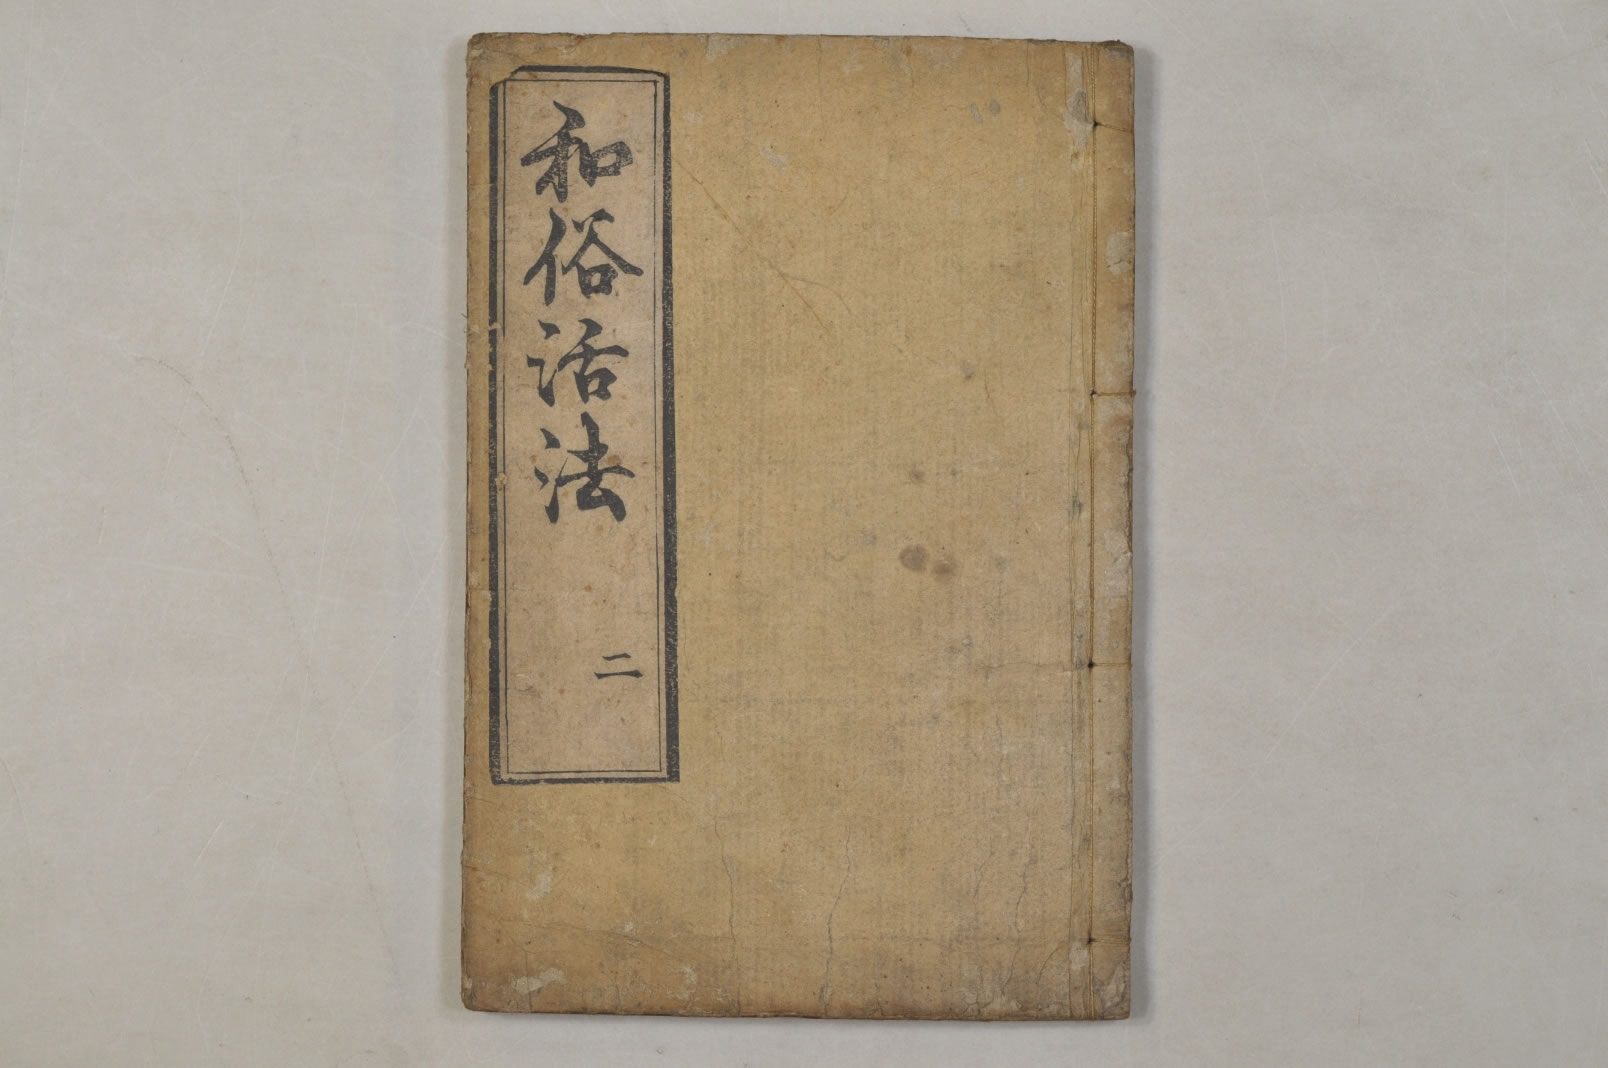 和俗活法
二